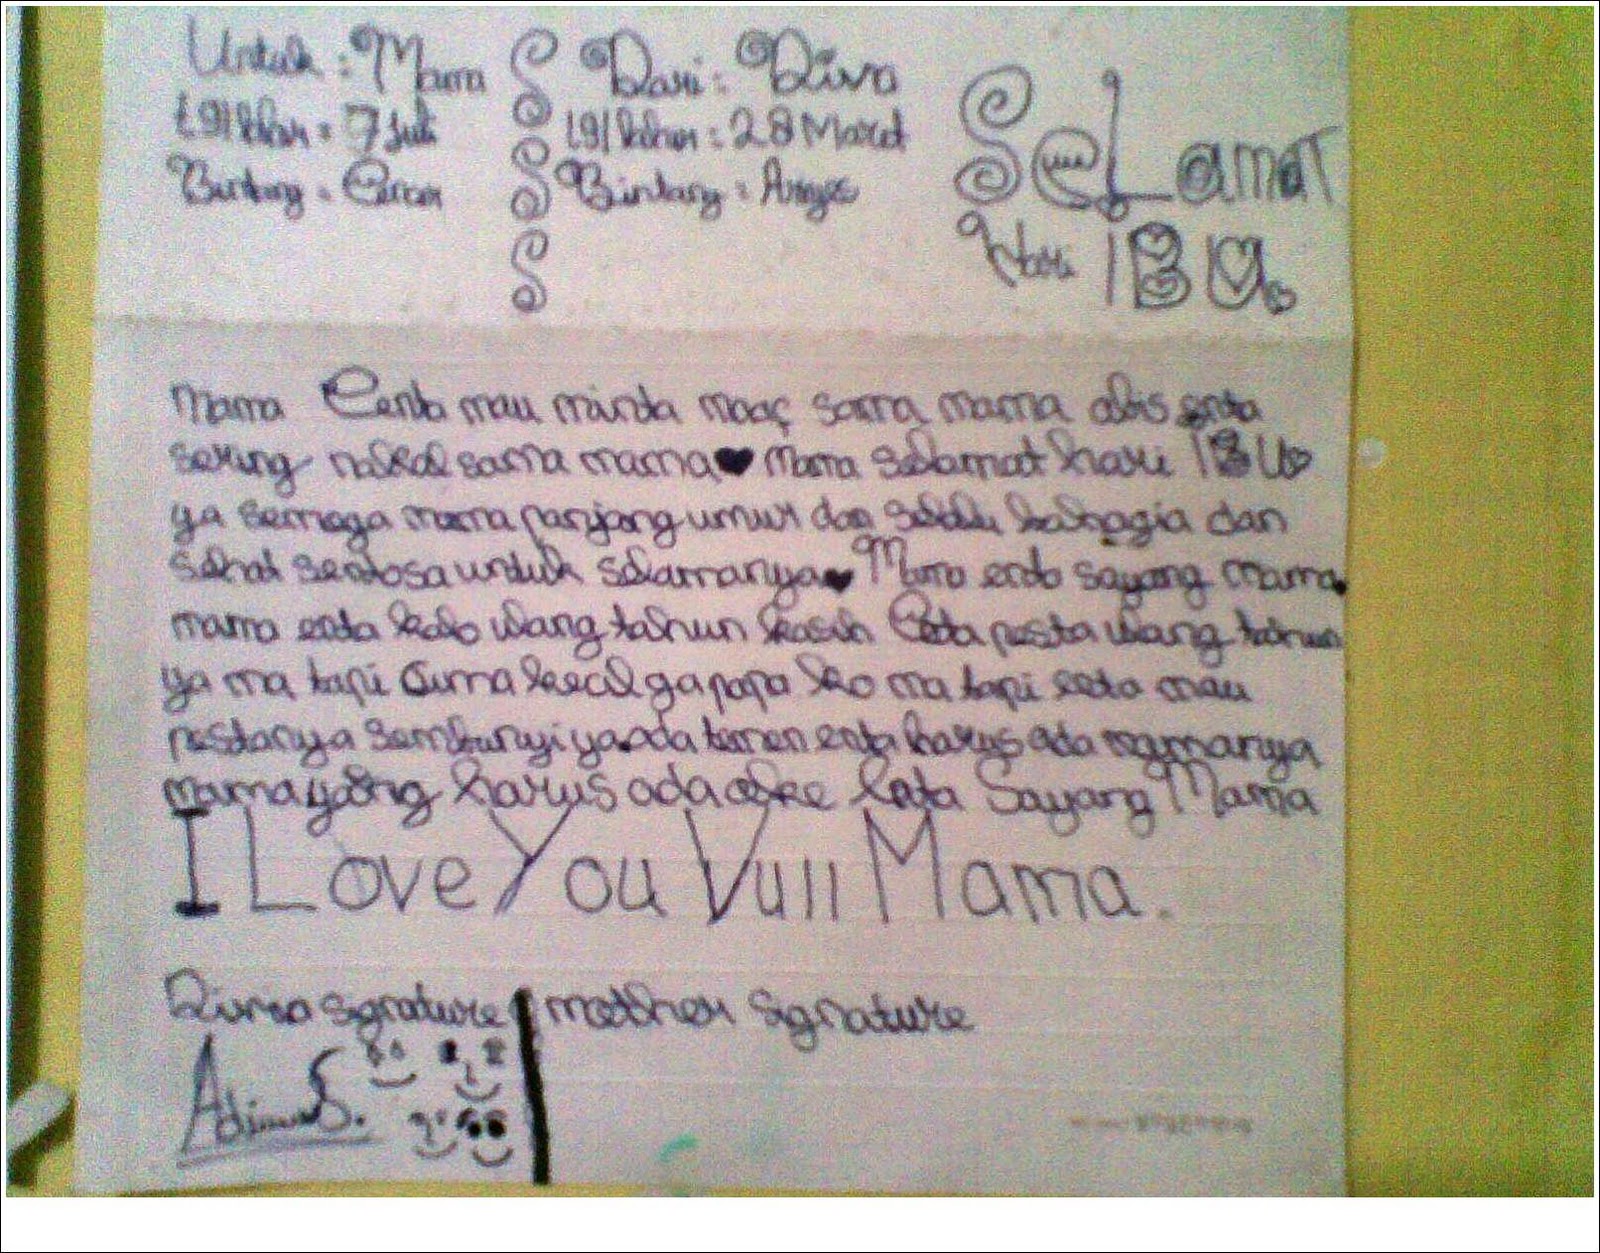 Untuk : Mama
tgl lahir : 7 Juli
Bintang : Cancer
Dari : Diva
tgl lahir : 28 Maret
Bintang : Aries
SeLamaT
Hari IBU
Mama Enta mau minta maaf sama mama abis enta
sering nakal sama mama♥ Mama selamat hari IBU♡
ya semoga mama panjang umur dan selalu bahagia dan
sehat sentosa untuk selamanya♥ Mama enta sayang mama♥
mama enta kalo ulang tahun kasih Enta pesta ulang tahun
ya ma tapi cuma kecil gapapa ko ma tapi enta mau
pestanya sembunyi ya ada temen enta harus ada
mama yang harus ada oke kata Sayang Mama
I Love You Vull Mama.
signature
mother signature